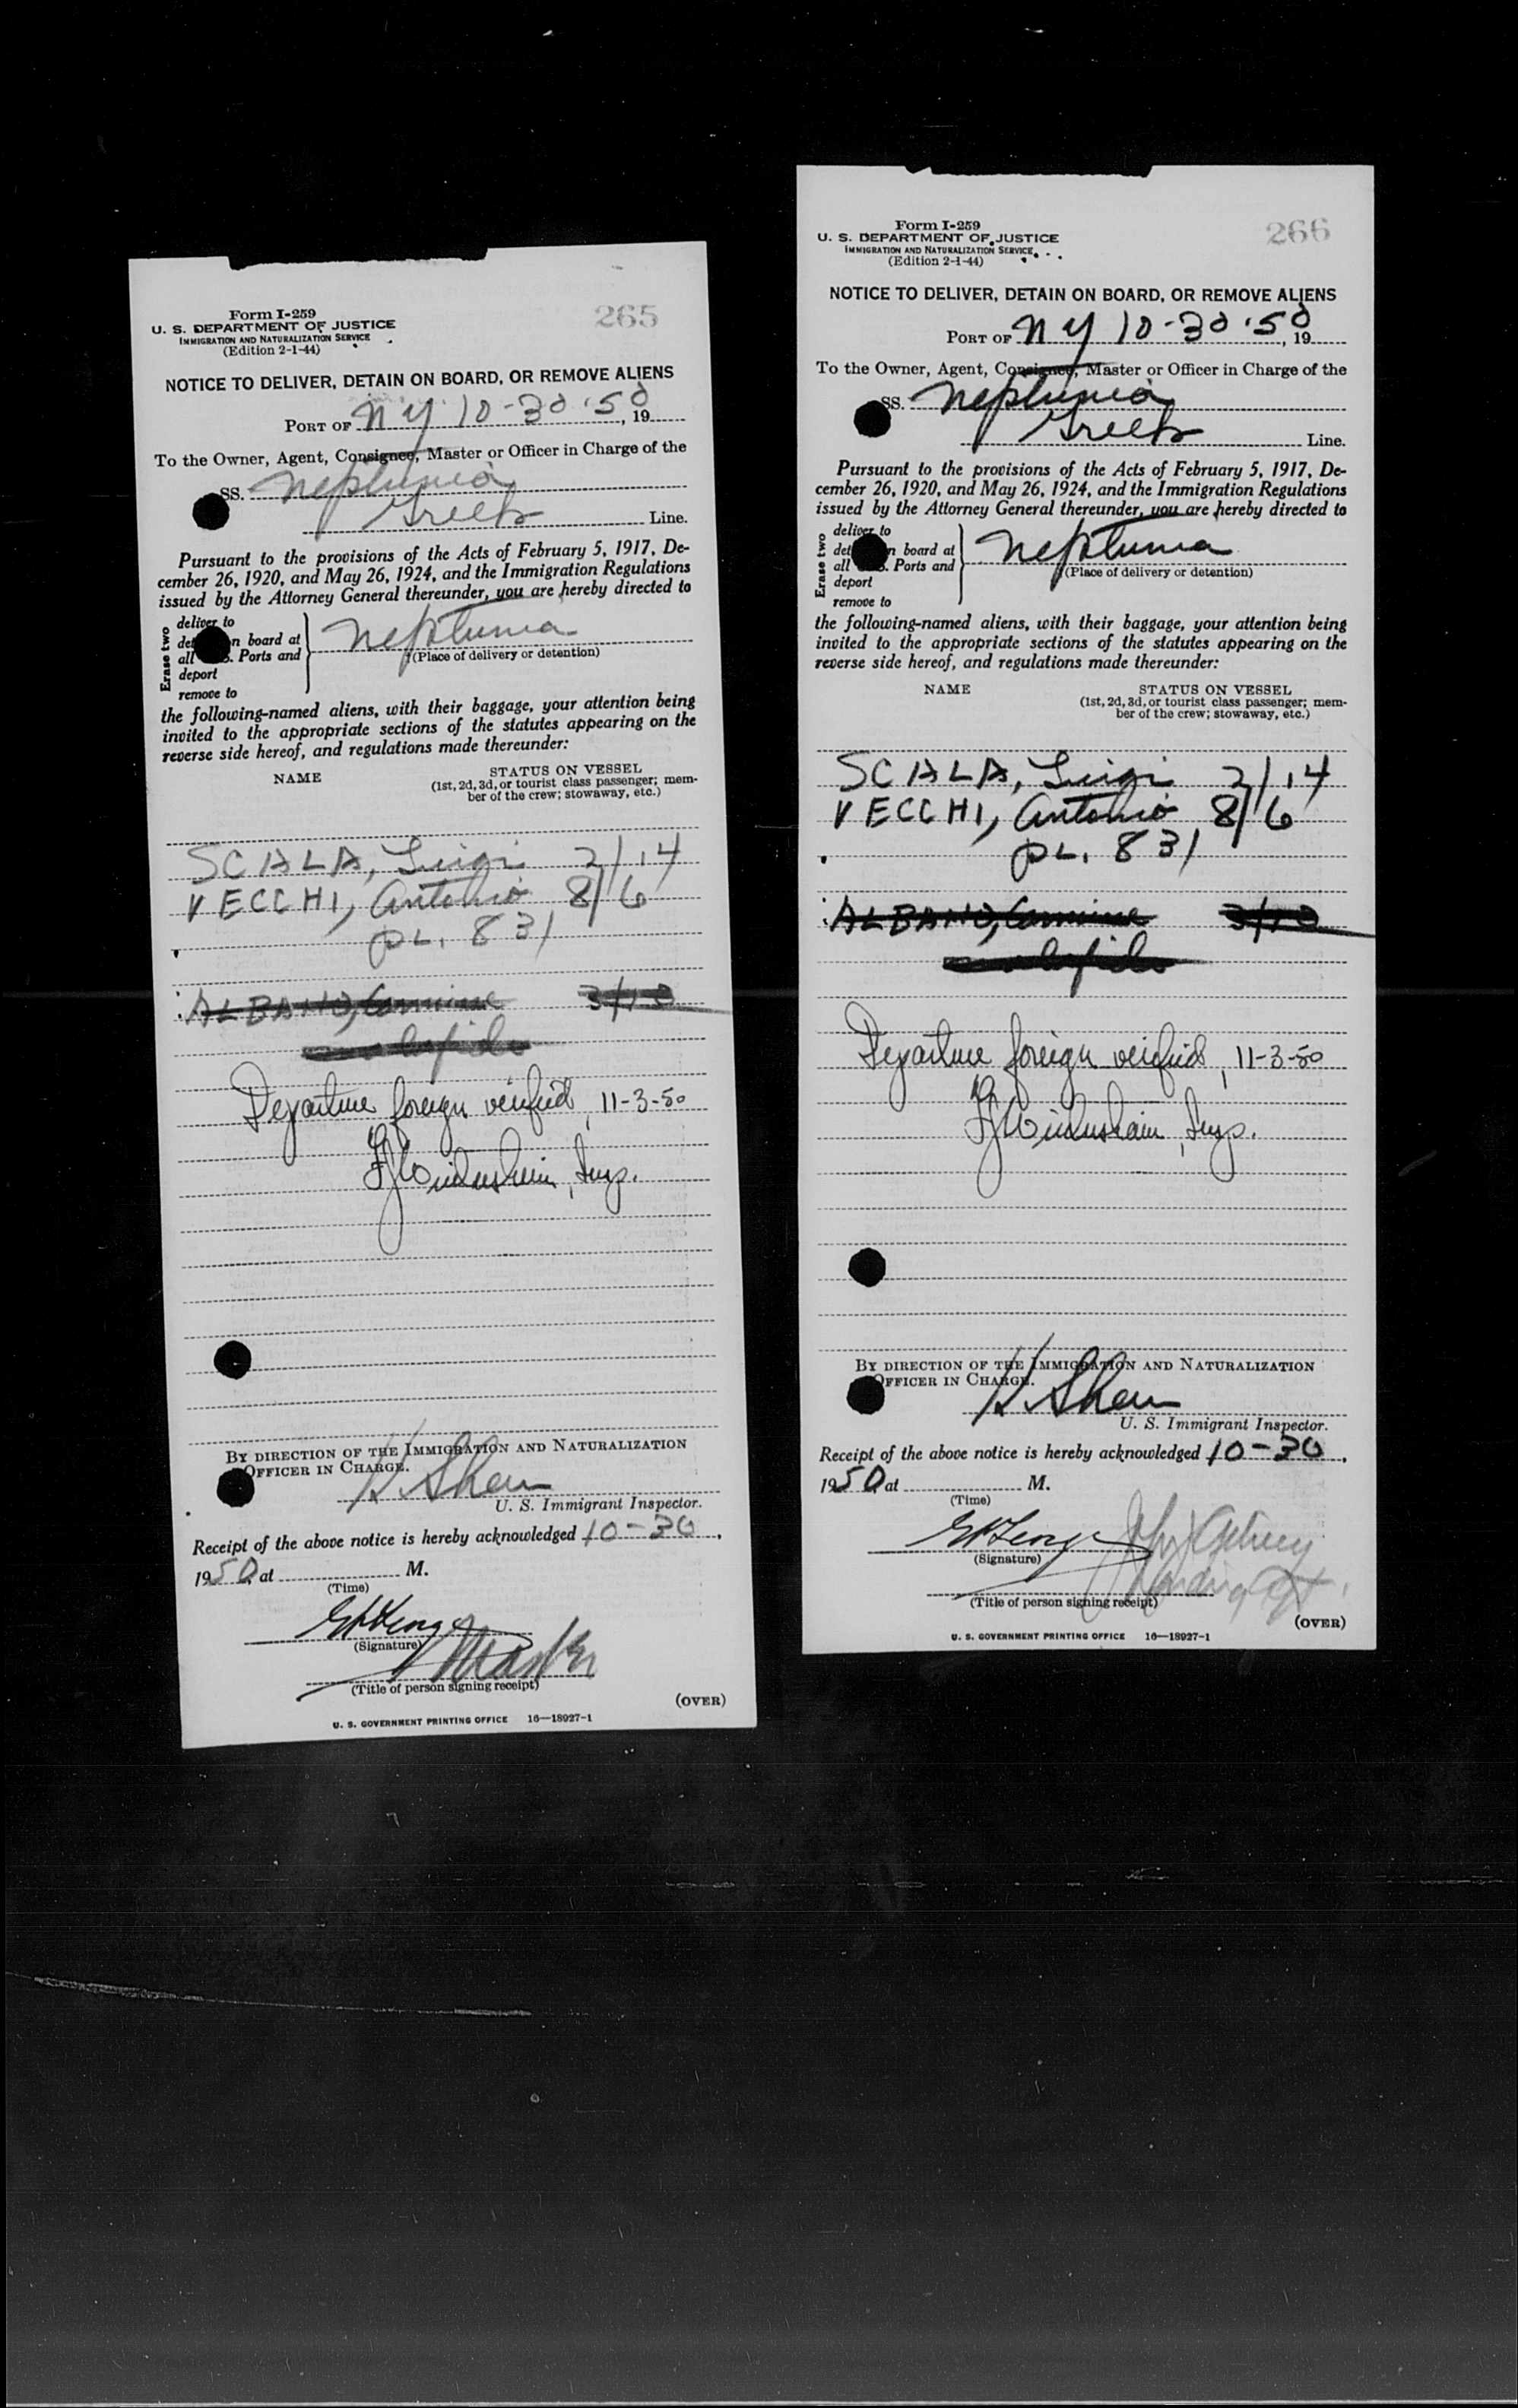 265
Form I-259
U. S. DEPARTMENT OF JUSTICE
IMMIGRATION AND NATURALIZATION SERVICE
(Edition 2-1-44)
NOTICE TO DELIVER, DETAIN ON BOARD, OR REMOVE ALIENS
PORT OF NY 10-30-50, 19
To the Owner, Agent, Consignee, Master or Officer in Charge of the
SS. Neptunia
Greek Line.
Pursuant to the provisions of the Acts of February 5, 1917, De-
cember 26, 1920, and May 26, 1924, and the Immigration Regulations
issued by the Attorney General thereunder, you are hereby directed to
Erase two
deliver to
det n board at
all . Ports and
deport
remove to
Neptunia
(Place of delivery or detention)
the following-named aliens, with their baggage, your attention being
invited to the appropriate sections of the statutes appearing on the
reverse side hereof, and regulations made thereunder:
NAME STATUS ON VESSEL
(1st, 2d, 3d, or tourist class passenger; mem-
ber of the crew; stowaway, etc.)
SCALA, Luigi 2/14
VECCHI, Antonio 8/6
PL. 831
ALBANO, Carmine 3/10
Departure foreign verified, 11-3-50
Insp.
BY DIRECTION OF THE IMMIGRATION AND NATURALIZATION
OFFICER IN CHARGE.
K. Shea
U. S. Immigrant Inspector.
Receipt of the above notice is hereby acknowledged 10-30,
1950, at M.
(Time)
(Signature)
Master
(Title of person signing receipt)
(OVER)
U. S. GOVERNMENT PRINTING OFFICE 16—18927-1
266
Form I-259
U. S. DEPARTMENT OF JUSTICE
IMMIGRATION AND NATURALIZATION SERVICE
(Edition 2-1-44)
NOTICE TO DELIVER, DETAIN ON BOARD, OR REMOVE ALIENS
PORT OF NY 10-30-50, 19
To the Owner, Agent, Consignee, Master or Officer in Charge of the
SS. Neptunia
Greek Line.
Pursuant to the provisions of the Acts of February 5, 1917, De-
cember 26, 1920, and May 26, 1924, and the Immigration Regulations
issued by the Attorney General thereunder, you are hereby directed to
Erase two
deliver to
det n board at
all . Ports and
deport
remove to
Neptunia
(Place of delivery or detention)
the following-named aliens, with their baggage, your attention being
invited to the appropriate sections of the statutes appearing on the
reverse side hereof, and regulations made thereunder:
NAME STATUS ON VESSEL
(1st, 2d, 3d, or tourist class passenger; mem-
ber of the crew; stowaway, etc.)
SCALA, Luigi 2/14
VECCHI, Antonio 8/6
PL. 831
ALBANO, Carmine 3/10
Departure foreign verified, 11-3-50
Insp.
BY DIRECTION OF THE IMMIGRATION AND NATURALIZATION
OFFICER IN CHARGE.
K. Shea
U. S. Immigrant Inspector.
Receipt of the above notice is hereby acknowledged 10-30,
1950, at M.
(Time)
(Signature)
(Title of person signing receipt)
(OVER)
U. S. GOVERNMENT PRINTING OFFICE 16—18927-1